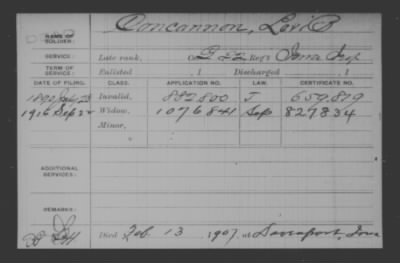 NAME OF SOLDIER: Concannon, Levi B
SERVICE: Late rank, Co. B 22 Reg't Iowa Inf
TERM OF SERVICE: Enlisted , 1 Discharged , 1
DATE OF FILING. CLASS. APPLICATION NO. LAW. CERTIFICATE NO.
1890 July 28 Invalid, 882800 J 659,819
1916 Sep 22 Widow, 1076841 Sep 827834
Minor,
ADDITIONAL SERVICES:
REMARKS:
Died Feb. 13, 1907, at Davenport, Iowa